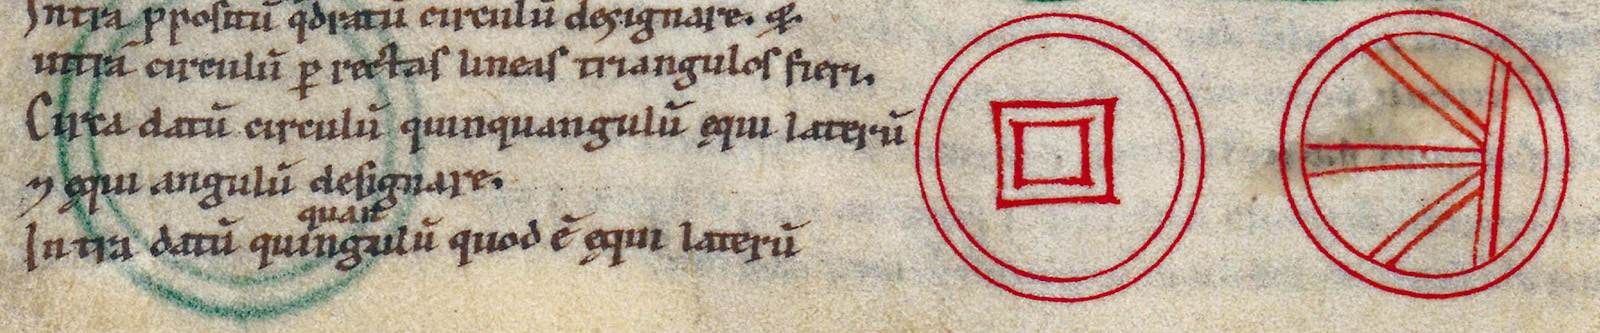 Intra ꝓpositū q̄dratū circulū designare. ꝙ.
intra circulū ꝑ rectas lineas triangulos fieri.
Circa datū circulū quinquangulū ęqui laterū
⁊ ęqui angulū designare.
quan
Intra datū quingulū quod ē ęqui laterū